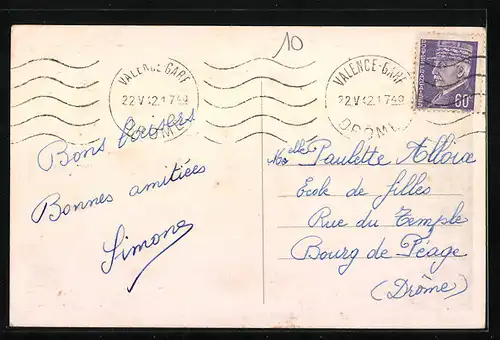 10
VALENCE-GARE
22 V 42.1749
DROME
VALENCE-GARE
22 V 42.1749
DROME
60c
Bons baisers
Bonnes amitiées
Simone
Melle Paulette
Ecole de filles
Rue du Temple
Bourg de Péage
(Drôme)